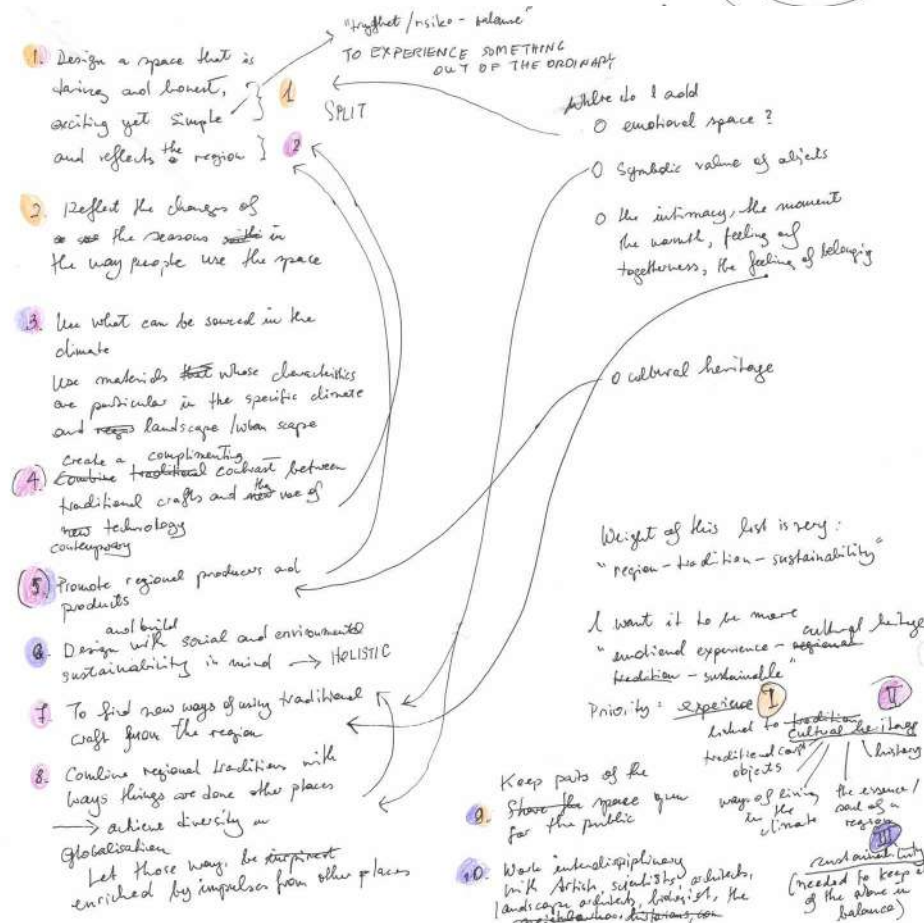 1. Design a space that is
daring and honest,
exciting yet simple
and reflects the region
1
SPLIT
2
"trygghet / risiko - balanse"
TO EXPERIENCE SOMETHING
OUT OF THE ORDINARY
2. Reflect the changes of
the seasons in
the way people use the space
3. Use what can be sourced in the
climate
Use materials that whose characteristics
are particular in the specific climate
and landscape / urban scape
create a complimenting
4. Combine traditional contrast between
traditional crafts and the new use of
new technology
contemporary
5. Promote regional producers and
products
and build
6. Design with social and environmental
sustainability in mind → HOLISTIC
7. To find new ways of using traditional
craft from the region
8. Combine regional traditions with
ways things are done other places
→ achieve diversity in
globalisation
Let those ways be
enriched by impulses from other places
Where do I add
O emotional space?
O Symbolic value of objects
O the intimacy, the moment
the warmth, feeling of
togetherness, the feeling of belonging
O cultural heritage
Weight of this list is very:
"region - tradition - sustainability"
I want it to be more
cultural heritage
"emotional experience - regional
tradition - sustainable"
Priority: experience I
II
linked to tradition
cultural heritage
traditional
objects
history
ways of living
in the
climate
the essence/
soul of a
region
III
sustainability
(needed to keep
of the above in
balance)
Keep parts of the
9. Share the space open
for the public
10. Work interdisciplinary
with Artists, scientists, architects,
landscape architects, biologist, the